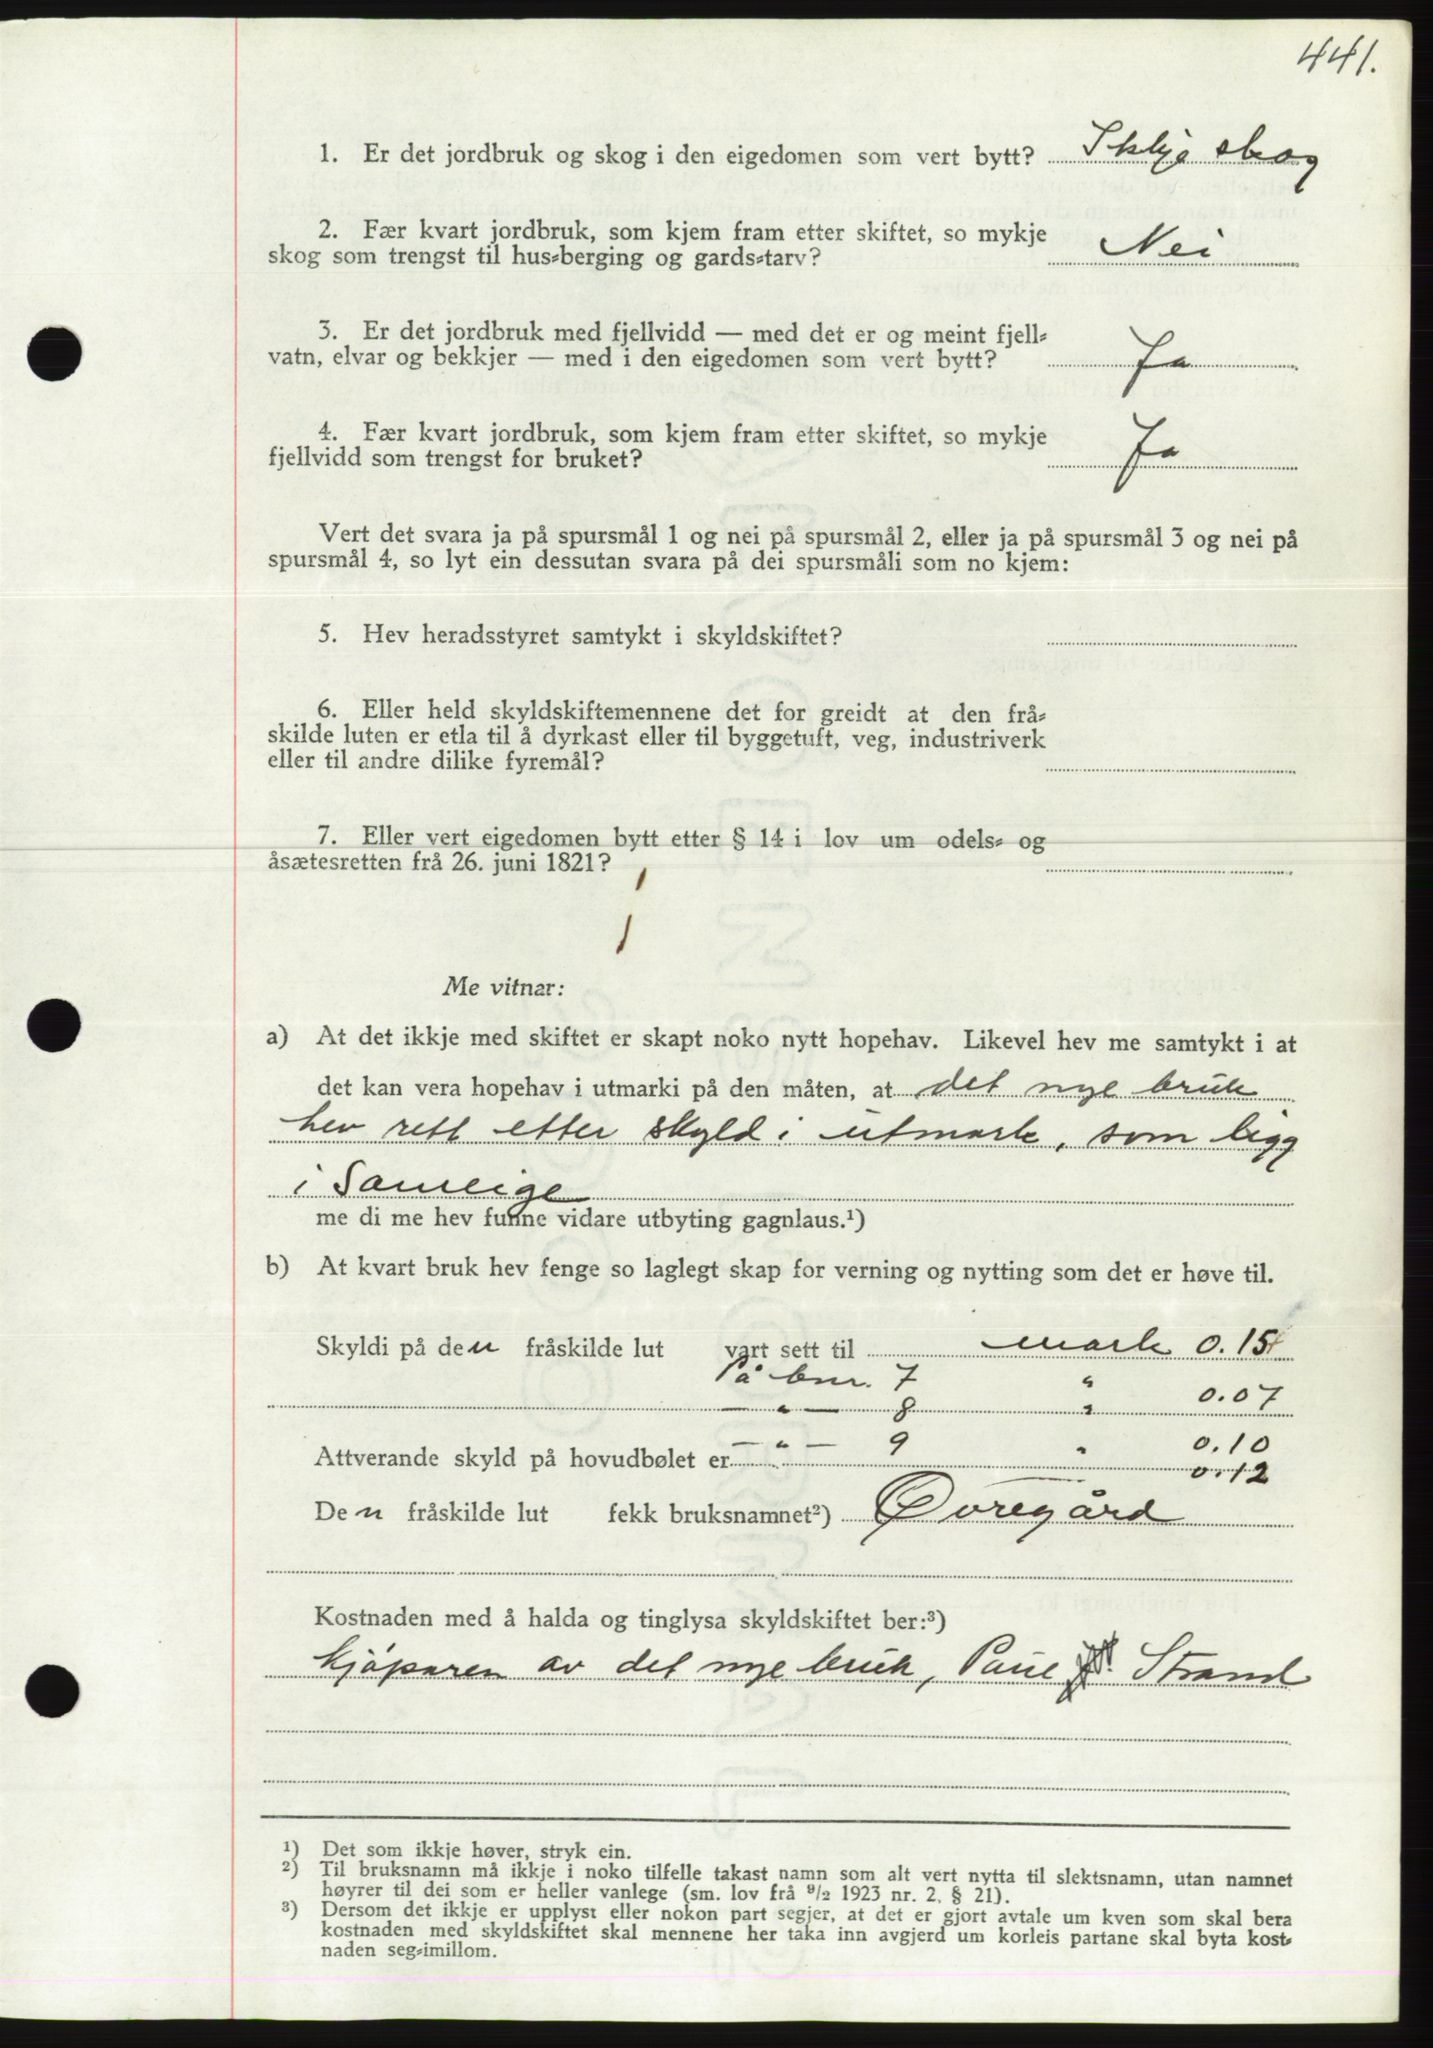 441.
1. Er det jordbruk og skog i den eigedomen som vert bytt? Ikkje skog
2. Fær kvart jordbruk, som kjem fram etter skiftet, so mykje
skog som trengst til hus-berging og gards-tarv? Nei
3. Er det jordbruk med fjellvidd — med det er og meint fjell-
vatn, elvar og bekkjer — med i den eigedomen som vert bytt? Ja
4. Fær kvart jordbruk, som kjem fram etter skiftet, so mykje
fjellvidd som trengst for bruket? Ja
Vert det svara ja på spursmål 1 og nei på spursmål 2, eller ja på spursmål 3 og nei på
spursmål 4, so lyt ein dessutan svara på dei spursmåli som no kjem:
5. Hev heradsstyret samtykt i skyldskiftet?
6. Eller held skyldskiftemennene det for greidt at den frå-
skilde luten er etla til å dyrkast eller til byggetuft, veg, industriverk
eller til andre dilike fyremål?
7. Eller vert eigedomen bytt etter § 14 i lov um odels- og
åsætesretten frå 26. juni 1821?
Me vitnar:
a) At det ikkje med skiftet er skapt noko nytt hopehav. Likevel hev me samtykt i at
det kan vera hopehav i utmarki på den måten, at det nye bruk
hev rett etter skyld i utmark, som ligg
i Sameige
me di me hev funne vidare utbyting gagnlaus.¹)
b) At kvart bruk hev fenge so laglegt skap for verning og nytting som det er høve til.
Skyldi på den fråskilde lut vart sett til mark 0.15
På bnr. 7 " 0.07
— " — 8 "
— " — 9 " 0.10
Attverande skyld på hovudbølet er 0.12
Den fråskilde lut fekk bruksnamnet²) Øvregård
Kostnaden med å halda og tinglysa skyldskiftet ber:³)
kjøparen av det nye bruk, Paul Strand
¹) Det som ikkje høver, stryk ein.
²) Til bruksnamn må ikkje i noko tilfelle takast namn som alt vert nytta til slektsnamn, utan namnet
høyrer til dei som er heller vanlege (sm. lov frå ⁹/₂ 1923 nr. 2, § 21).
³) Dersom det ikkje er upplyst eller nokon part segjer, at det er gjort avtale um kven som skal bera
kostnaden med skyldskiftet skal mennene her taka inn avgjerd um korleis partane skal byta kost-
naden seg-imillom.